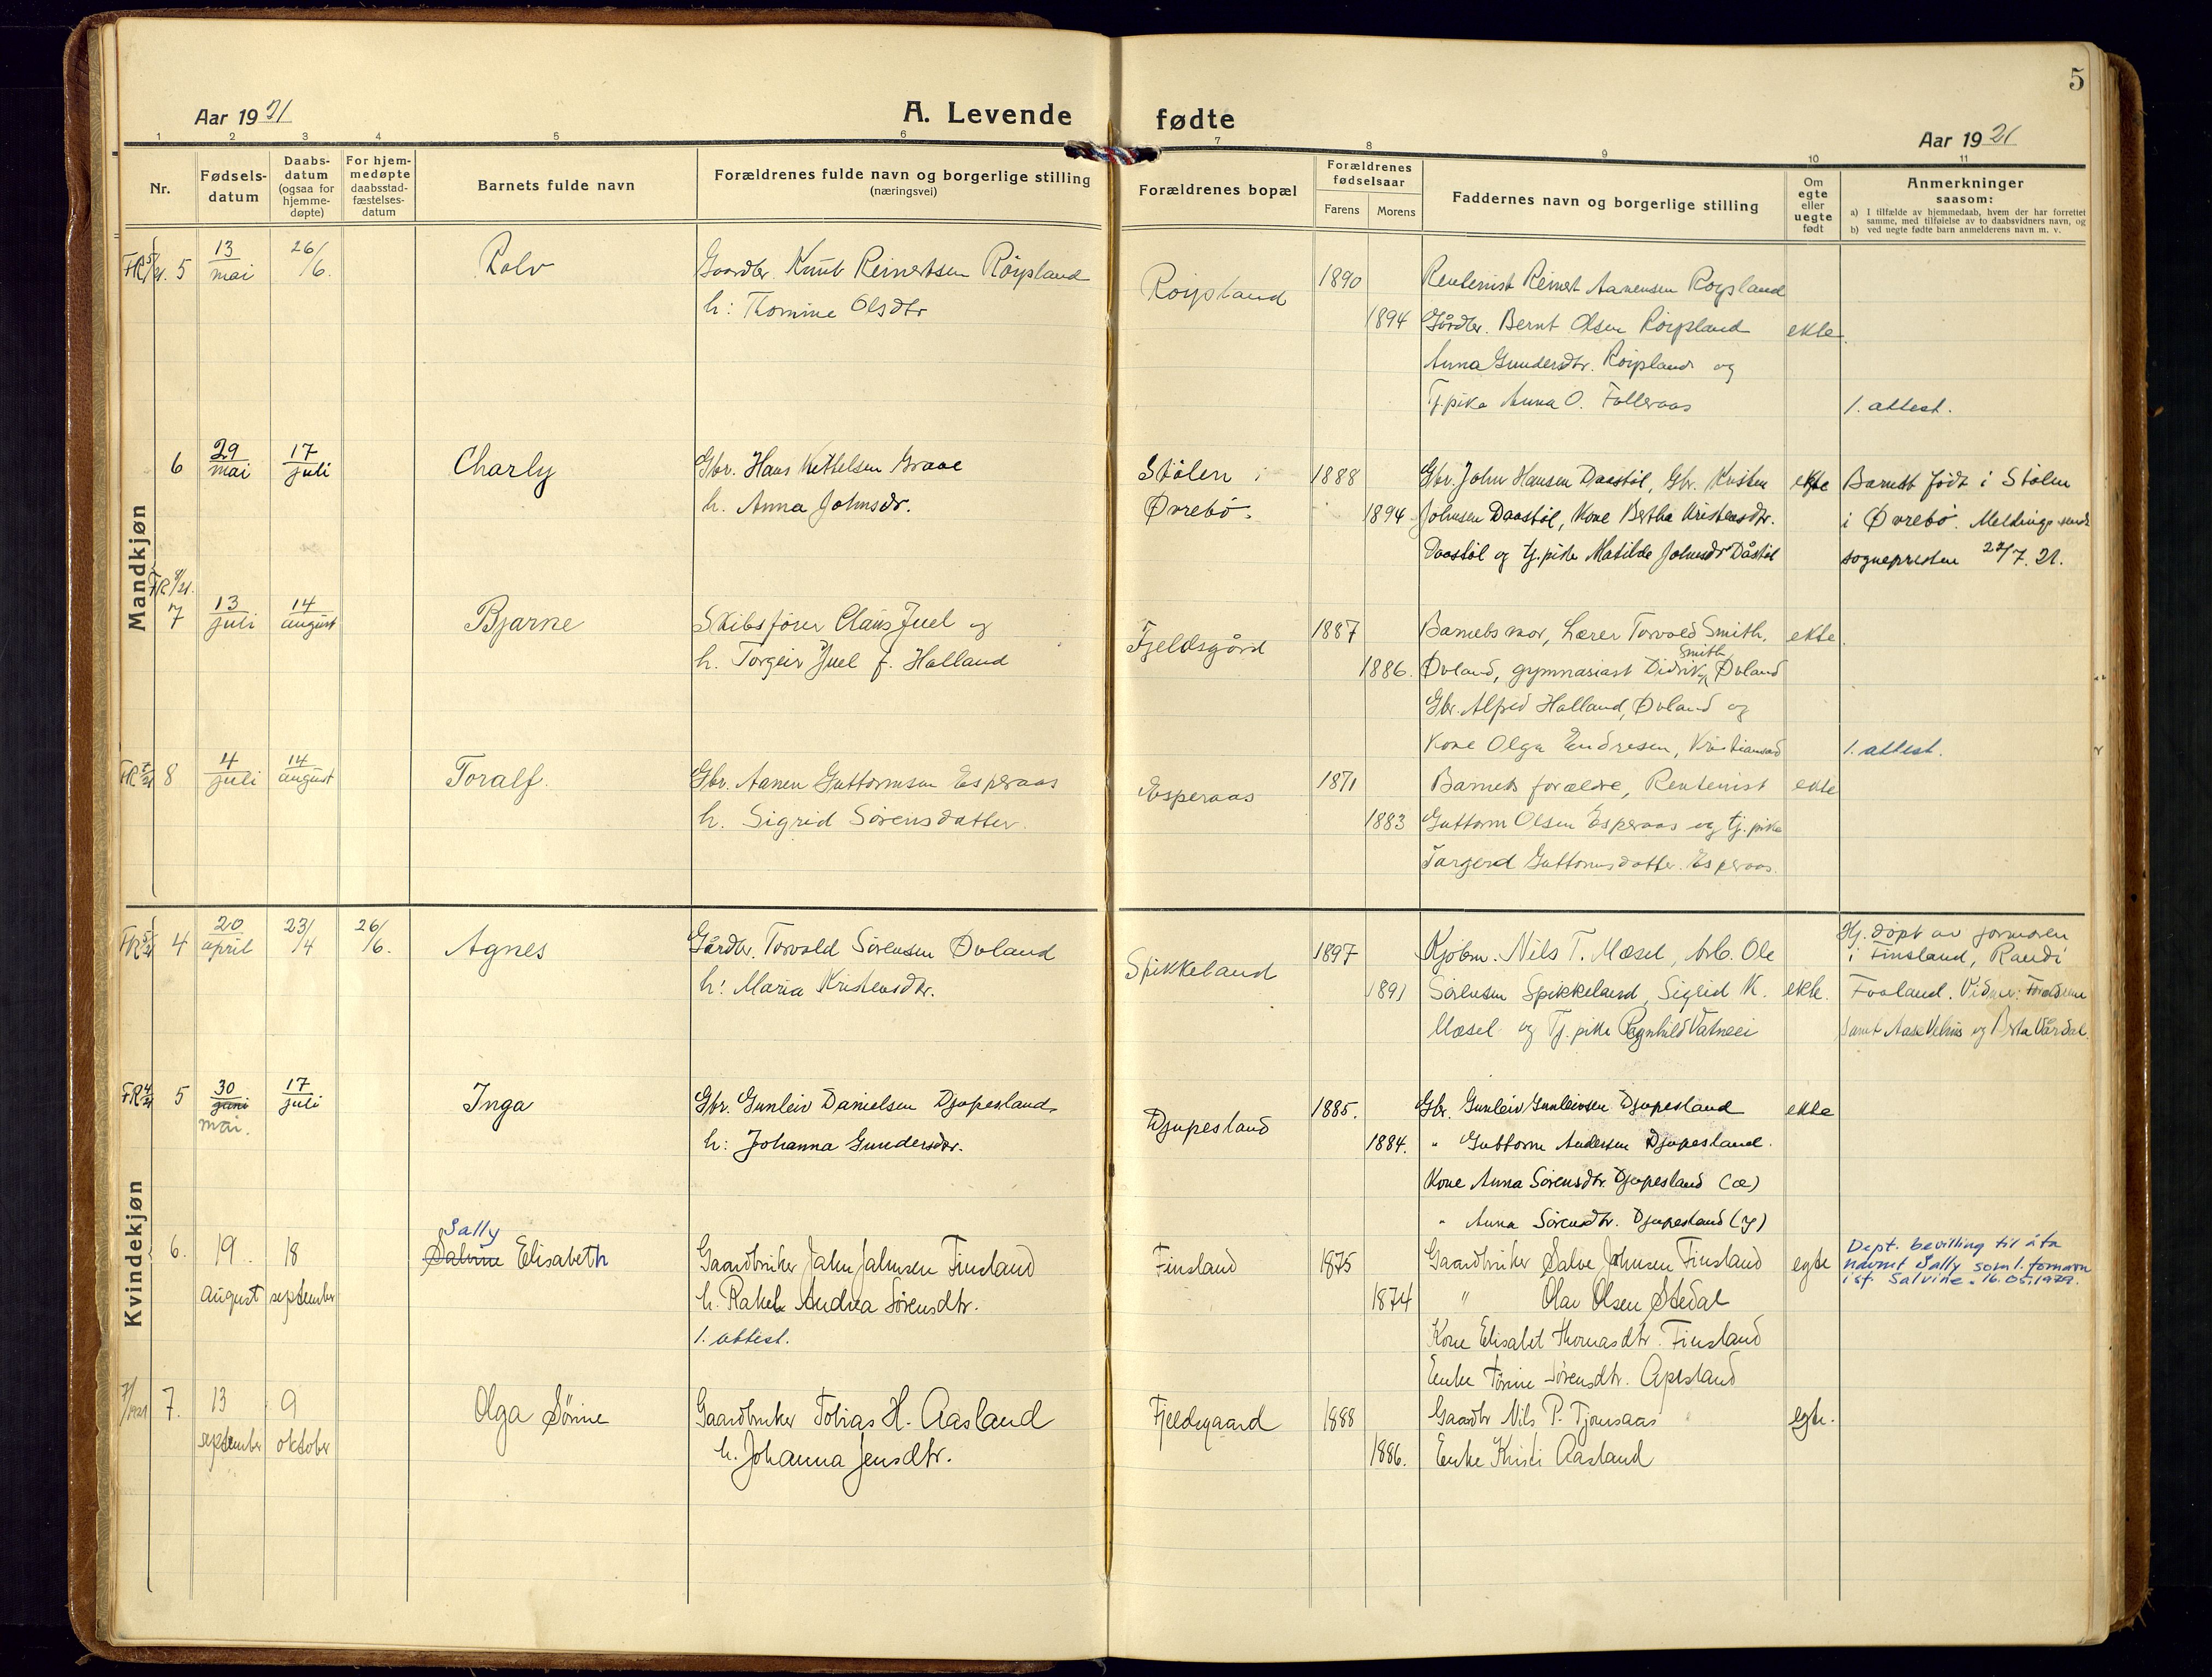 5
Aar 1921
A. Levende fødte
Aar 1921
1 2 3 4 5 6 7 8 9 10 11
Nr.
Fødselsdatum
Daabsdatum (ogsaa for hjemmedøpte)
For hjemmedøpte daabsstadfæstelsesdatum
Barnets fulde navn
Forældrenes fulde navn og borgerlige stilling
(næringsvei)
Forældrenes bopæl
Forældrenes fødselsaar
Farens
Morens
Faddernes navn og borgerlige stilling
Om egte eller uegte født
Anmerkninger
saasom:
a) I tilfælde av hjemmedaab, hvem der har forrettet samme, med tilføielse av to daabsvidners navn, og
b) ved uegte fødte barn anmelderens navn m. v.
Mandkjøn
FR 5/21. 5 13 mai 26/6. Rolv
Gaardbr. Knut Reinertsen Röypland
h: Thomine Olsdtr
Röypland 1890
1894
Rentenist Reinert Aanensen Röypland
Gårdbr. Bernt Olsen Röipland ekte.
Anna Gundersdtr. Röipland og
Tj.pike Anna O. Falleraas
1. attest.
6 29 mai 17 juli Charly
Gbr. Hans Kittelsen Graae
h. Anna Johnsdr.
Stölen i
Øvrebö.
1888
1894
Gbr. John Hansen Daastöl, Gbr. Kristen ekte
Johnsen Daastöl, Kone Bertha Kristensdtr.
Daastöl og tj.pike Matilde Johnsdr Dåstöl
Barnet födt i Stölen
i Øvrebö. Melding sendt
sognepresten 22/7. 21.
FR 8/21.
7 13 juli 14 august Bjarne
Skibsförer Claus Juel og
h. Torgeir Juel f. Halland
Fjeldsgård 1887
1886.
Barnets mor, Lærer Torvald Smith, ekte.
Øvland, gymnasiast Didrik Smith, Øvland
Gbr. Alfred Halland, Øvland og
Kone Olga Endresen, Kristiansand
1. attest.
FR 7/21 8 4 juli 14 august Toralf.
Gbr. Aanen Guttormsen Esperaas
h. Sigrid Sörensdatter.
Esperaas 1871
1883
Barnets forældre, Rentenist ekte
Guttorm Olsen Esperaas og tj. pike
Targerd Guttormsdatter Esperaas.
Kvindekjøn
FR 5/21 4 20 april 23/4 26/6. Agnes
Gårdbr. Torvald Sörensen Øvland
h: Maria Kristensdtr.
Spikkeland 1897
1891
Kjöbm. Nils T. Mæsel, Arb. Ole
Sörensen Spikkeland, Sigrid K. ekte.
Mæsel og Tj. pike Ragnhild Vatneei
Hj. döpt av jormoren
i Finsland, Randi
Fröland. Vidner: Forældrene
samt Aase Vehus og Berta Várdal.
FR 4/21 5 30 juni mai. 17 juli Inga
Gbr. Gunleiv Danielsen Djupesland.
h: Johanna Gundersdtr.
Djupesland 1885.
1884.
Gbr. Gunleiv Gunleivsen Djupesland ekte
" Guttorm Andersen Djupesland.
Kone Anna Sörensdtr. Djupesland (æ)
" Anna Sörensdtr. Djupesland (y)
6. 19. august 18 september
Sally
Salvine Elisabeth
Gaardbruker Jahn Jahnsen Finsland
h. Rakel Andrea Sörensdtr.
1. attest.
Finsland 1875
1874
Gaardbruker Salve Johnsen Finsland egte
" Olav Olsen Stedal
Kone Elisabet Thomasdtr. Finsland
Enke Tomine Sörensdtr. Apesland
Dept. bevilling til å ta
navnet Sally som 1. fornavn
ist. Salvine. 16.05.1979.
7/1921 7. 13 september 9 oktober Olga Sörine
Gaardbruker Tobias H. Aasland
h. Johanna Jensdtr.
Fjeldsgaard 1888
1886.
Gaardbr Nils P. Tjomsaas egte.
Enke Kristi Aasland